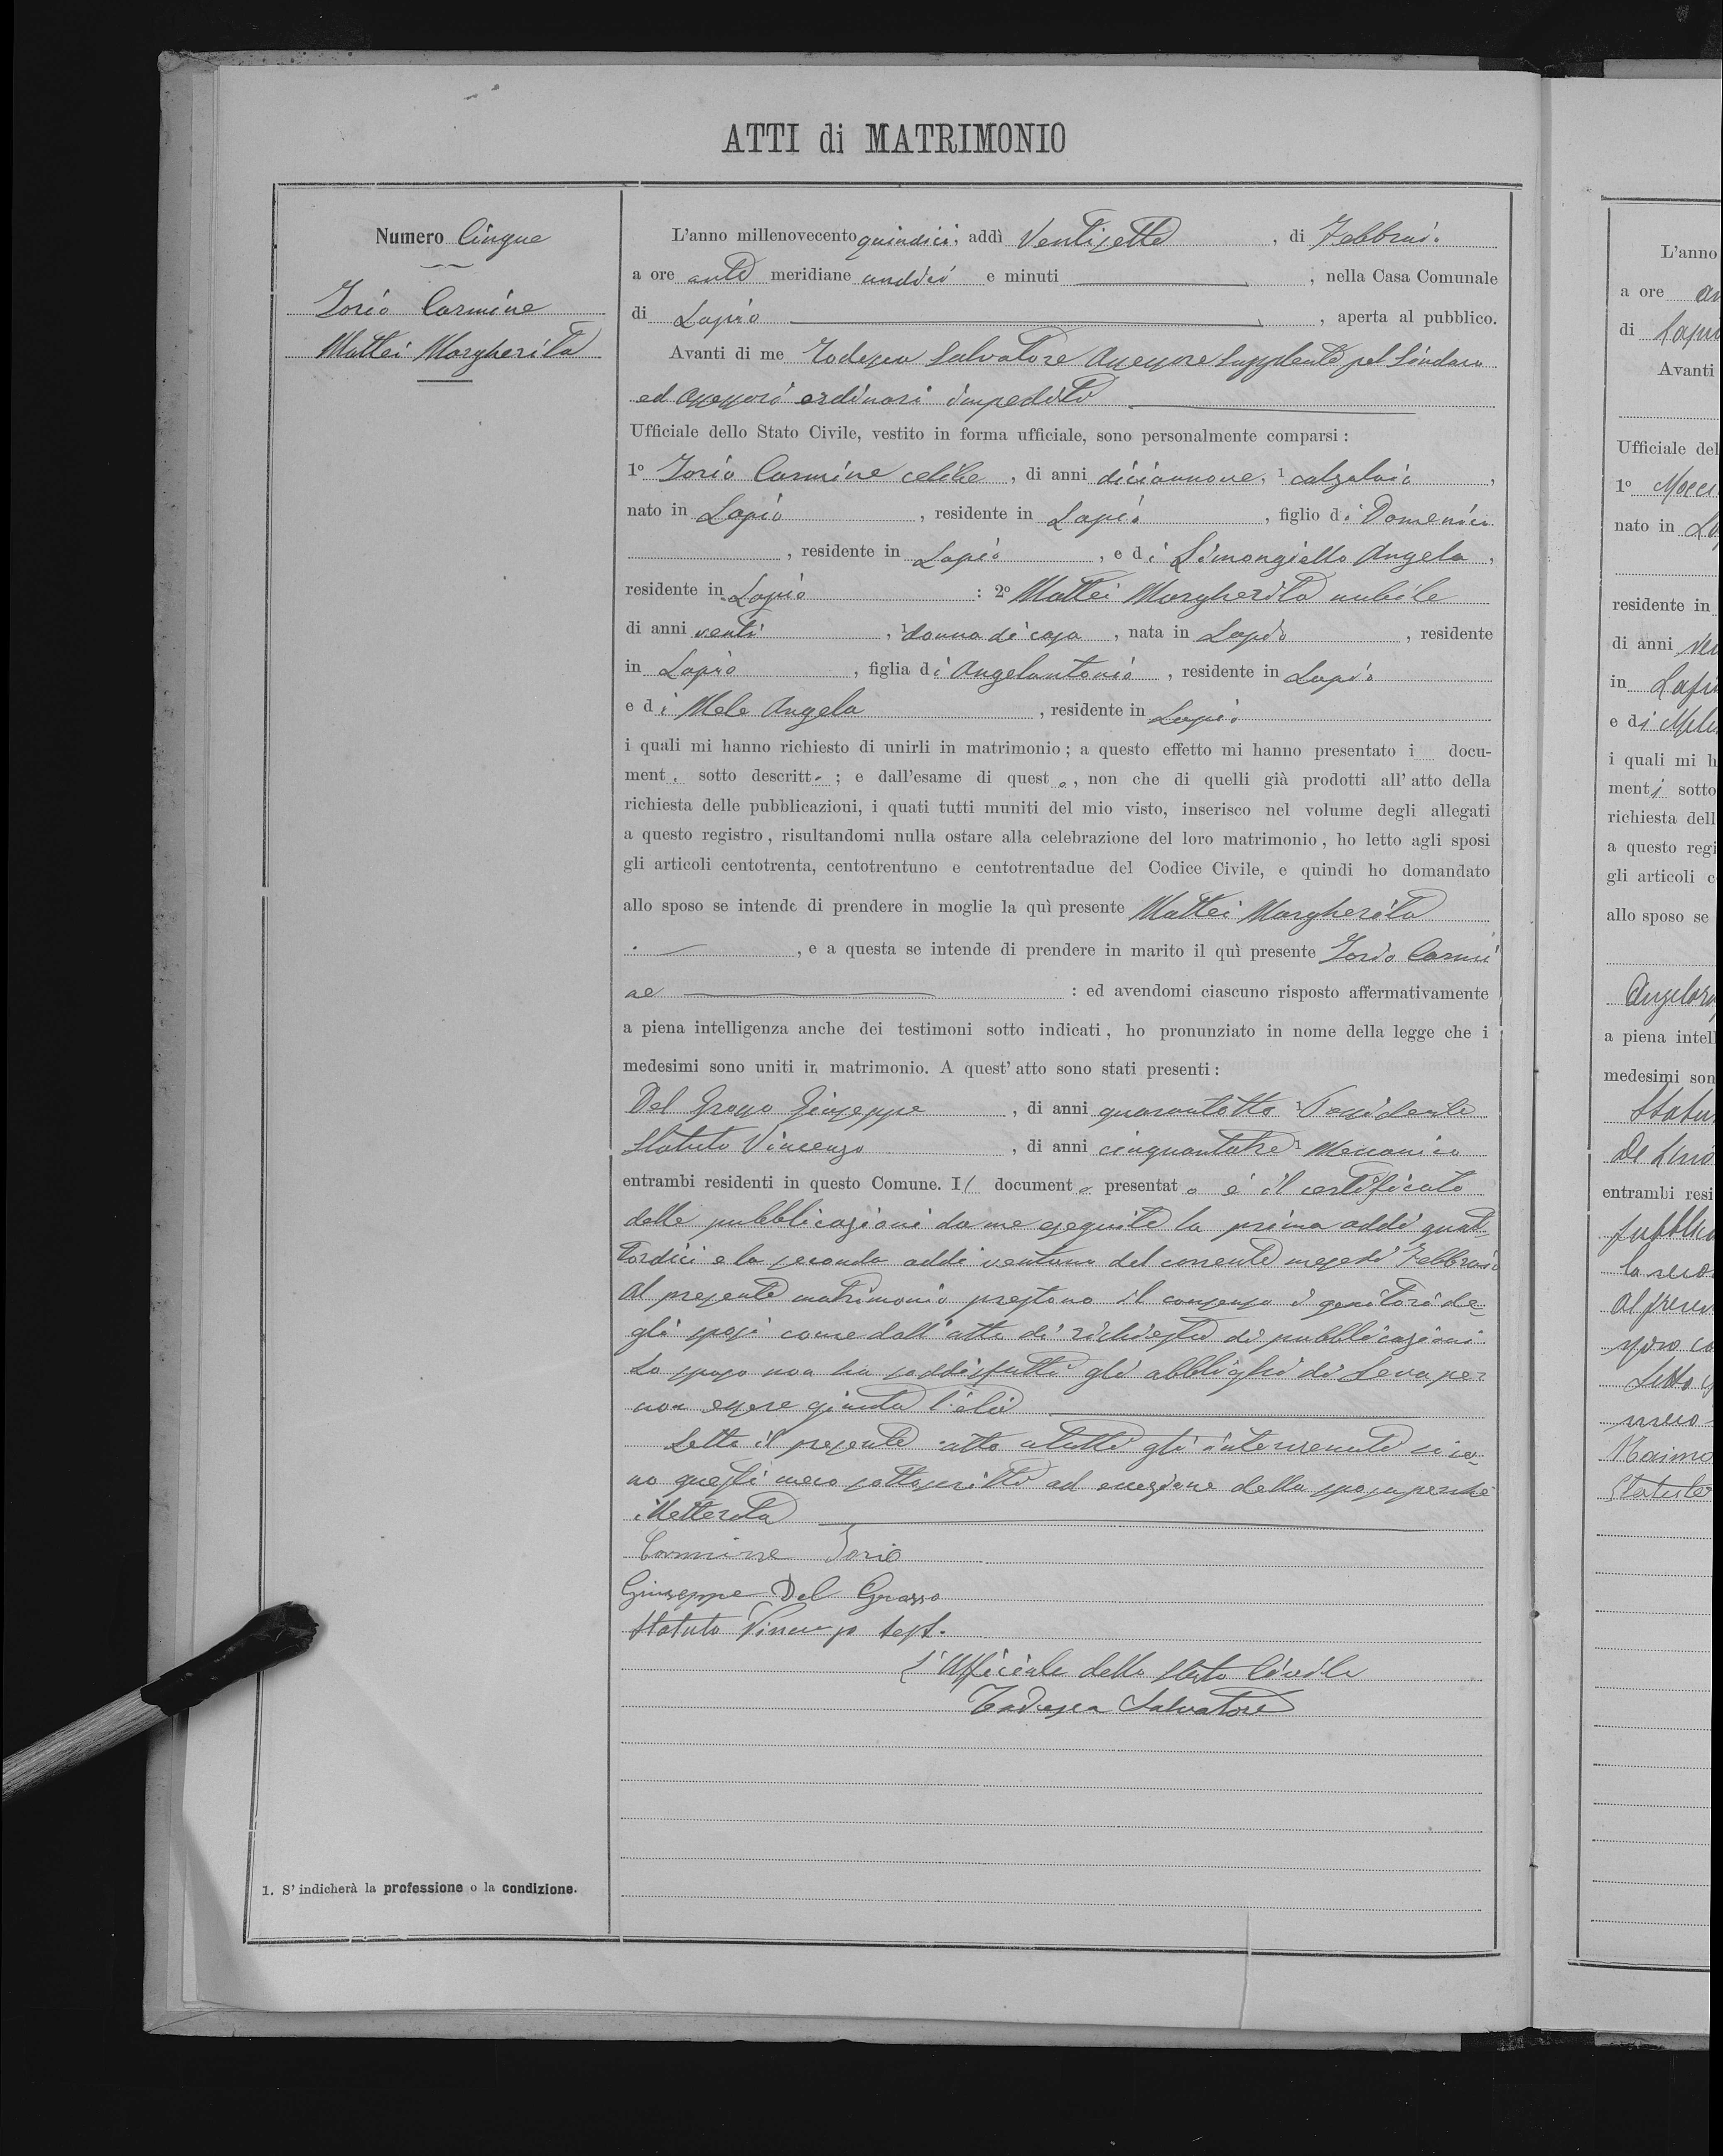 ATTI di MATRIMONIO
Numero Cinque
Iorio Carmine
Mattei Margherita
L'anno millenovecento quindici, addì Ventisette, di Febbraio
a ore ante meridiane undici e minuti, nella Casa Comunale
di Lapio, aperta al pubblico.
Avanti di me Todesca Salvatore Assessore Supplente pel Sindaco
ed assessori ordinari impediti
Ufficiale dello Stato Civile, vestito in forma ufficiale, sono personalmente comparsi :
1º Iorio Carmine celibe, di anni diciannove, 1 calzolaio,
nato in Lapio, residente in Lapio, figlio di Domenico
, residente in Lapio, e di Simongiello Angela,
residente in Lapio : 2º Mattei Margherita nubile
di anni venti, 1 donna di casa, nata in Lapio, residente
in Lapio, figlia di Angelantonio, residente in Lapio
e di Mele Angela, residente in Lapio
i quali mi hanno richiesto di unirli in matrimonio ; a questo effetto mi hanno presentato i docu-
mento sotto descritto ; e dall'esame di questo, non che di quelli già prodotti all' atto della
richiesta delle pubblicazioni, i quati tutti muniti del mio visto, inserisco nel volume degli allegati
a questo registro , risultandomi nulla ostare alla celebrazione del loro matrimonio , ho letto agli sposi
gli articoli centotrenta, centotrentuno e centotrentadue del Codice Civile, e quindi ho domandato
allo sposo se intende di prendere in moglie la quì presente Mattei Margherita
, e a questa se intende di prendere in marito il quì presente Iorio Carmi
ne : ed avendomi ciascuno risposto affermativamente
a piena intelligenza anche dei testimoni sotto indicati , ho pronunziato in nome della legge che i
medesimi sono uniti in matrimonio. A quest' atto sono stati presenti :
Del Grosso Giuseppe, di anni quarantotto 1 Possidente
Statuto Vincenzo, di anni cinquantatre 1 Meccanico
entrambi residenti in questo Comune. Il documento presentato è il certificato
delle pubblicazioni da me eseguite la prima addì quat-
tordici e la seconda addì ventuno del corrente mese di Febbraio
Al presente matrimonio prestano il consenso i genitori de-
gli sposi come dall'atto di richiesta di pubblicazioni
Lo sposo non ha soddisfatti gli obblighi di Leva per
non essere giunta l'età
Letto il presente atto a tutti gli intervenuti si so-
no questi meco sottoscritti ad eccezione della sposa perché
illetterata
Carmine Iorio
Giuseppe Del Grosso
Statuto Vincenzo test.
L'Ufficiale dello Stato Civile
Todesca Salvatore
1. S' indicherà la professione o la condizione.
L'anno
a ore an
di Lapio
Avanti
Ufficiale del
1º
nato in
residente in
di anni
in Lapio
e di Mele
i quali mi h
menti sotto
richiesta dell
a questo regi
gli articoli c
allo sposo se
a piena intell
medesimi son
Statuto
entrambi resi
pubblica
Al presen
Letto
Statuto